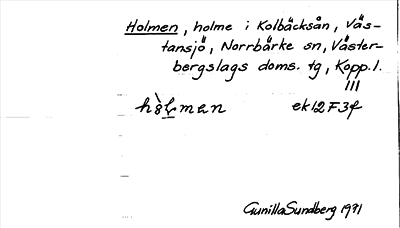 Holmen, holme i Kolbäcksån, Väs-
tansjö, Norrbärke sn, Väster-
bergslags doms. tg, Kopp.l.
III
ek12F3f
Gunilla Sundberg 1991